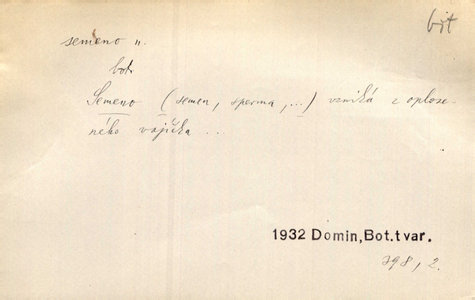 bot
semeno n.
bot.
Semeno (semen, sperma, ...) vzniká z oploze-
ného vajíčka ...
1932 Domin, Bot.tvar.
298, 2.